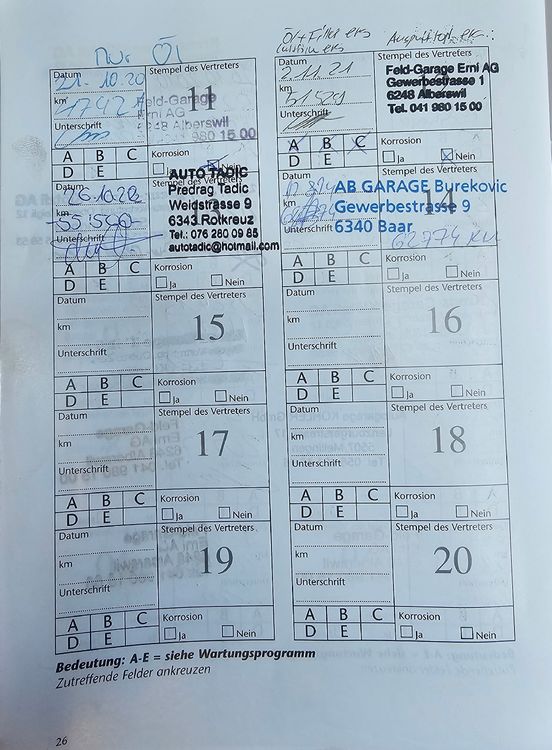 Nur Öl
Öl + Filter ers
Auspufftopf ers.:
Datum
21.10.20
Stempel des Vertreters
km
11
Feld-Garage
Erni AG
6248 Alberswil
980 15 00
Unterschrift
A B C
Korrosion
Ja Nein
Datum
2.11.21
Stempel des Vertreters
km
51529
Feld-Garage Erni AG
Gewerbestrasse 1
6248 Alberswil
Tel. 041 980 15 00
Unterschrift
A B C
D E
Korrosion
Ja Nein
Datum
km
55'550
Unterschrift
Stempel des Vertreters
AUTO TADIC
Predrag Tadic
Weidstrasse 9
6343 Rotkreuz
Tel.: 076 280 09 85
autotadic@hotmail.com
A B C
D E
Korrosion
Ja Nein
14
AB GARAGE Burekovic
Gewerbestrasse 9
6340 Baar
62774 KM
A B C
D E
Korrosion
Ja Nein
Datum
Stempel des Vertreters
km
15
Unterschrift
A B C
D E
Korrosion
Ja Nein
Datum
Stempel des Vertreters
km
16
Unterschrift
A B C
D E
Korrosion
Ja Nein
Datum
Stempel des Vertreters
km
17
Unterschrift
A B C
D E
Korrosion
Ja Nein
Datum
Stempel des Vertreters
km
18
Unterschrift
A B C
D E
Korrosion
Ja Nein
Datum
Stempel des Vertreters
km
19
Unterschrift
A B C
D E
Korrosion
Ja Nein
Datum
Stempel des Vertreters
km
20
Unterschrift
A B C
D E
Korrosion
Ja Nein
Bedeutung: A-E = siehe Wartungsprogramm
Zutreffende Felder ankreuzen
26